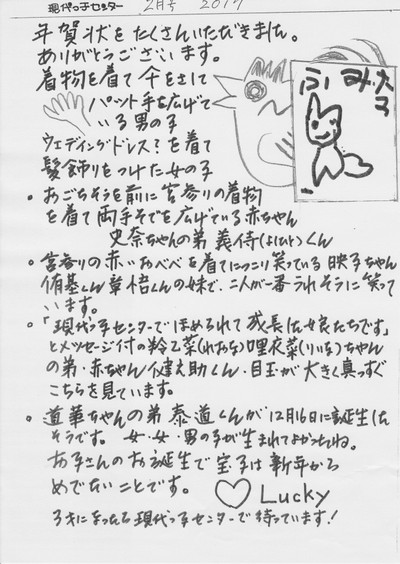 現代っ子センター 2月号 2017
年賀状をたくさんいただきました。
ありがとうございます。
着物を着て 千をさして
パット手を広げて
いる男の子
ウェディングドレス?を着て
髪飾りをつけた女の子
ふみ
・おごちそうを前に宮参りの着物
を着て両手そでを広げている赤ちゃん
史奈ちゃんの弟 義仁(よしひと)くん
・宮参りの赤いおべべを着てにっこり笑っている 映子ちゃん
侑基くん章悟くんの妹で、二人が一番うれしそうに笑って
います。
・「現代っ子センターでほめられて成長した娘たちです」
とメッセージ付の羚乙菜(れおな)哩衣菜(りいな)ちゃん
の弟・赤ちゃん健之助くん・目玉が大きく真っすぐ
こちらを見ています。
・道華ちゃんの弟 泰道くんが12月16日に誕生した
そうです。女・女・男の子が生まれてよかったね。
お子さんのお誕生で宝子は新年から
めでたいことです。 ♡ Lucky
3才になったら現代っ子センターで待っています!